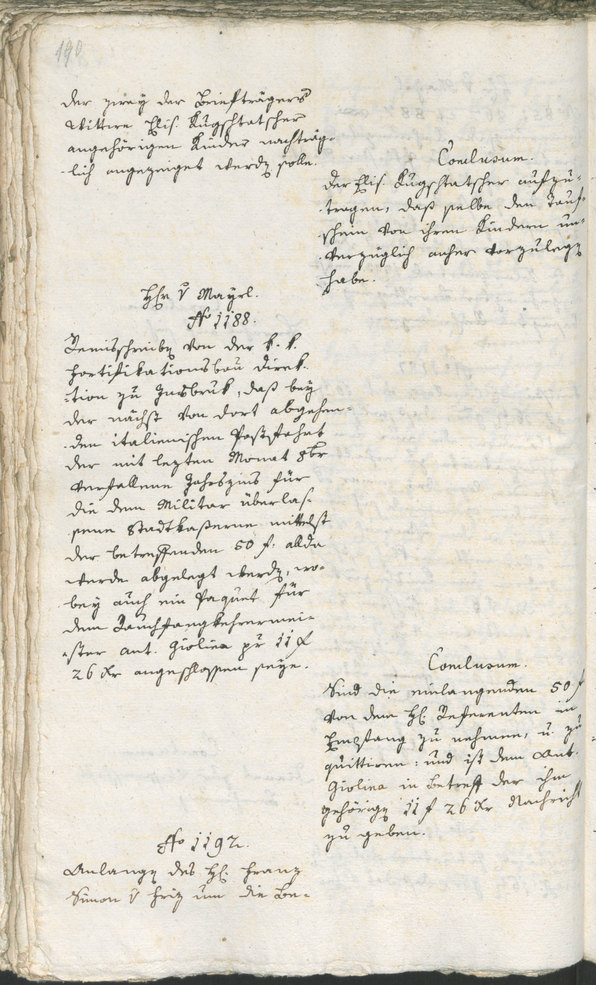 190
der zwey der Briefträgers
Wittwe Elis. Kugstatscher
angehörigen Kinder nachträg-
lich angezeiget werdn solle.
Conclusum.
Der Elis. Kugstatscher aufzu-
tragen, daß selbe den Tauf-
schein von ihren Kindern un-
verzüglich anher vorzulegn
habe.
Hr. v Mayrl.
No 1188.
Remisschreibn von der k. k.
Fortifikationsbau Direk-
tion zu Insbruk, daß bey
der nächst von dort abgehen-
den italienischen Postfahrt
der mit lezten Monat 8br
verfallene Jahrszins für
die dem Militar überlas-
sene Stadtkaserne mittelst
der betreffenden 50 f. allda
werde abgelegt werdn, wo-
bey auch ein Paquet für
dem Rauchfangkehrermei-
ster Ant. Giolica pr 11 f
26 Xr angeschlossen seye.
Conclusum.
Sind die einlangenden 50 f
von dem H. Referenten in
Empfang zu nehmen, u. zu
quittiren: und ist dem Ant.
Giolica in Betreff der ihm
gehörign 11 f 26 Xr Nachricht
zu geben.
No 1192.
Anlangn des H. Franz
Simon v Friz um die Be-